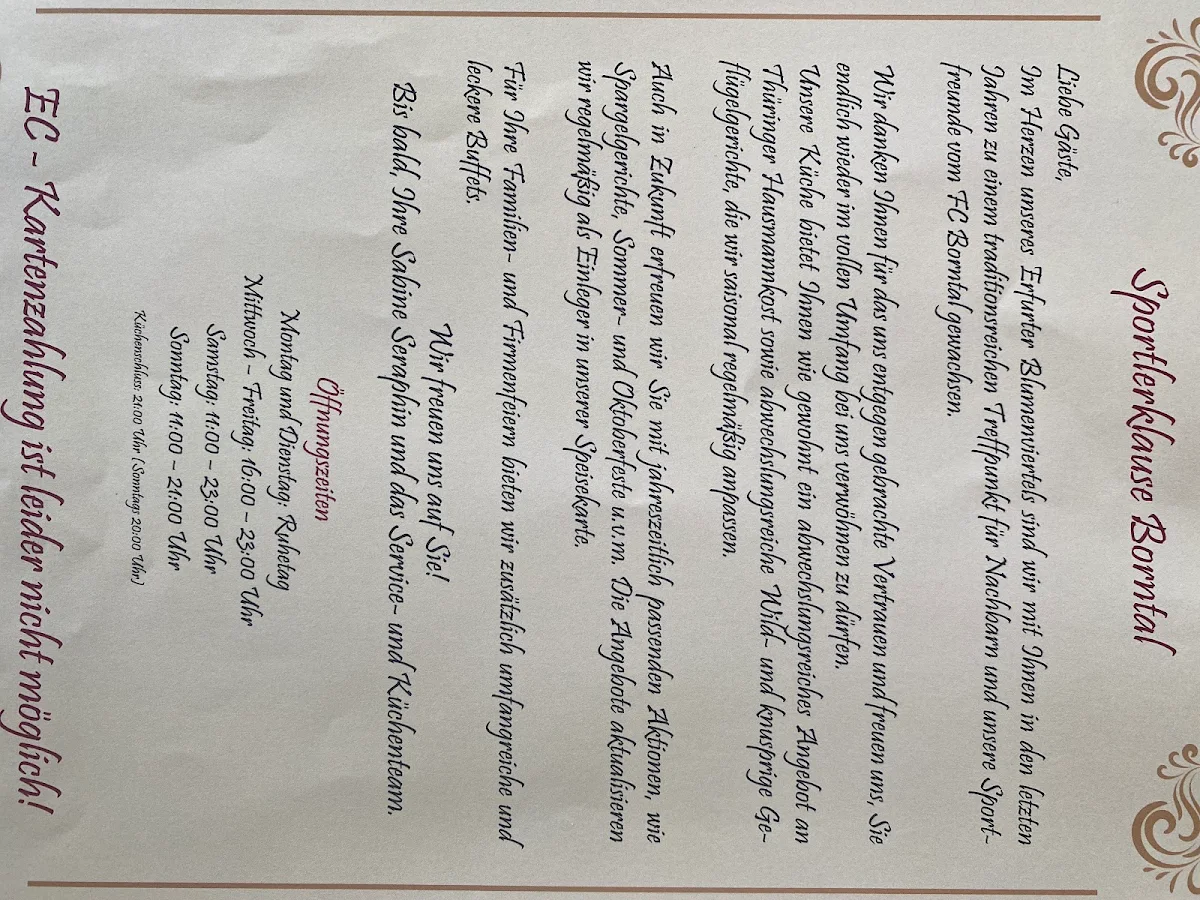 Sportlerklause Borntal
Liebe Gäste,
Im Herzen unseres Erfurter Blumenviertels sind wir mit Ihnen in den letzten
Jahren zu einem traditionsreichen Treffpunkt für Nachbarn und unsere Sport-
freunde vom FC Borntal gewachsen.
Wir danken Ihnen für das uns entgegen gebrachte Vertrauen und freuen uns, Sie
endlich wieder im vollen Umfang bei uns verwöhnen zu dürfen.
Unsere Küche bietet Ihnen wie gewohnt ein abwechslungsreiches Angebot an
Thüringer Hausmannkost sowie abwechslungsreiche Wild- und knusprige Ge-
flügelgerichte, die wir saisonal regelmäßig anpassen.
Auch in Zukunft erfreuen wir Sie mit jahreszeitlich passenden Aktionen, wie
Spargelgerichte, Sommer- und Oktoberfeste u.v.m. Die Angebote aktualisieren
wir regelmäßig als Einleger in unserer Speisekarte.
Für Ihre Familien- und Firmenfeiern bieten wir zusätzlich umfangreiche und
leckere Buffets.
Wir freuen uns auf Sie!
Bis bald, Ihre Sabine Seraphin und das Service- und Küchenteam.
Öffnungszeiten
Montag und Dienstag: Ruhetag
Mittwoch - Freitag: 16:00 - 23:00 Uhr
Samstag: 11:00 - 23:00 Uhr
Sonntag: 11:00 - 21:00 Uhr
Küchenschluss: 21:00 Uhr (Sonntags 20:00 Uhr)
EC - Kartenzahlung ist leider nicht möglich!